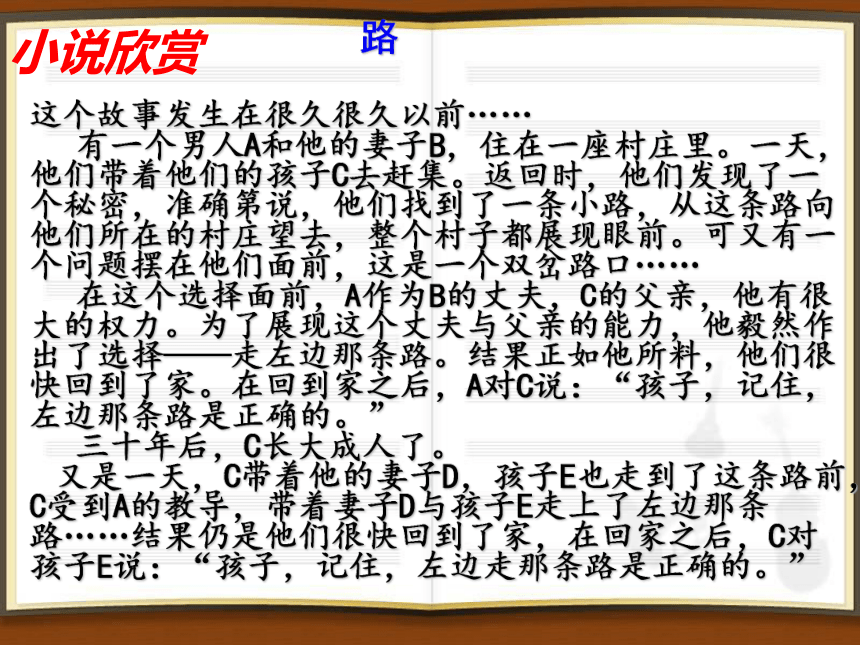 小说欣赏
路
这个故事发生在很久很久以前……
有一个男人A和他的妻子B，住在一座村庄里。一天，
他们带着他们的孩子C去赶集。返回时，他们发现了一
个秘密，准确第说，他们找到了一条小路，从这条路向
他们所在的村庄望去，整个村子都展现眼前。可又有一
个问题摆在他们面前，这是一个双岔路口……
在这个选择面前，A作为B的丈夫，C的父亲，他有很
大的权力。为了展现这个丈夫与父亲的能力，他毅然作
出了选择——走左边那条路。结果正如他所料，他们很
快回到了家。在回到家之后，A对C说：“孩子，记住，
左边那条路是正确的。”
三十年后，C长大成人了。
又是一天，C带着他的妻子D，孩子E也走到了这条路前，
C受到A的教导，带着妻子D与孩子E走上了左边那条
路……结果仍是他们很快回到了家，在回家之后，C对
孩子E说：“孩子，记住，左边走那条路是正确的。”